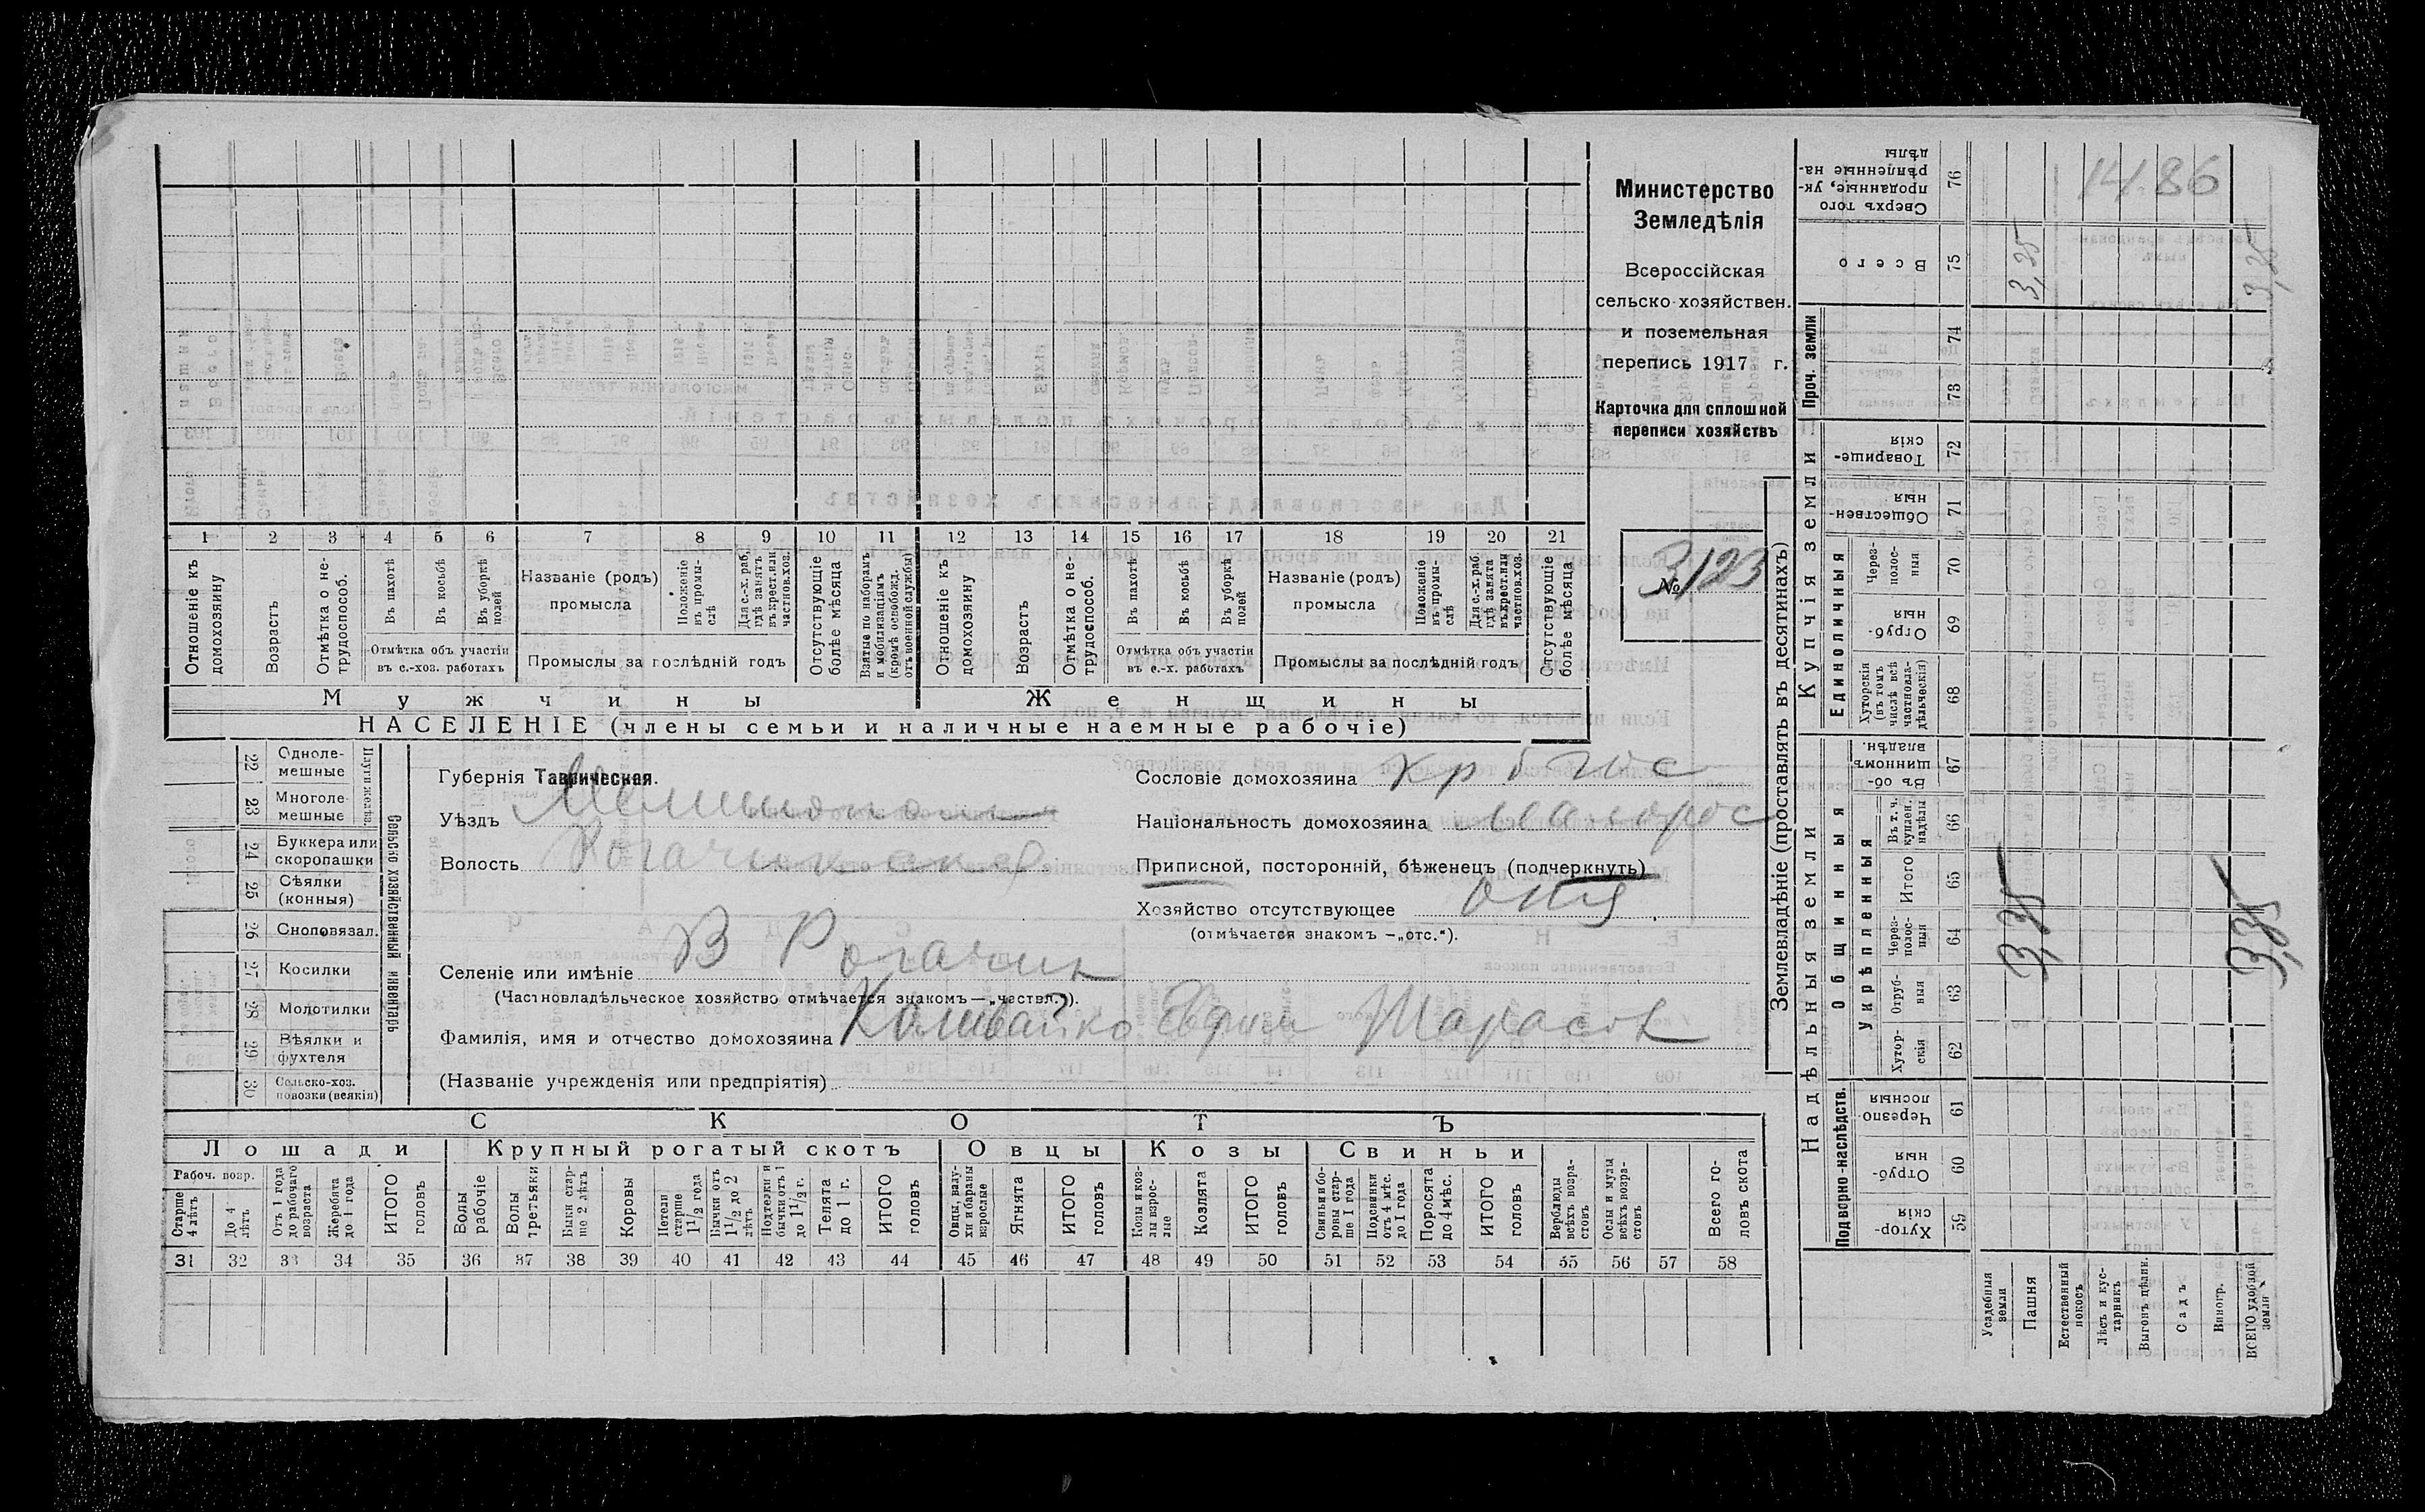 Министерство
Земледѣлія
Всероссійская
сельско-хозяйствен.
и поземельная
перепись 1917 г.
Карточка для сплошной
переписи хозяйствъ
№ 3123
1 2 3 4 5 6 7 8 9 10 11 12 13 14 15 16 17 18 19 20 21
Отношеніе къ домохозяину
Возрастъ
Отмѣтка о нетрудоспособ.
Въ пахотѣ
Въ косьбѣ
Въ уборкѣ полей
Отмѣтка объ участіи
въ с.-хоз. работахъ
Названіе (родъ)
промысла
Положеніе въ промыслѣ
Для с.-х. раб. гдѣ занятъ въ крест. или частнов. хоз.
Промыслы за послѣдній годъ
Отсутствующіе болѣе мѣсяца
Взятые по наборамъ и мобилизаціямъ (кромѣ освобожд. отъ военной службы)
Отношеніе къ домохозяину
Возрастъ
Отмѣтка о нетрудоспособ.
Въ пахотѣ
Въ косьбѣ
Въ уборкѣ полей
Отмѣтка объ участіи
въ с.-х. работахъ
Названіе (родъ)
промысла
Положеніе въ промыслѣ
Для с.-х. раб. гдѣ занята въ крест. или частнов. хоз.
Промыслы за послѣдній годъ
Отсутствующіе болѣе мѣсяца
Мужчины
Женщины
НАСЕЛЕНІЕ (члены семьи и наличные наемные рабочіе)
Сельско хозяйственный инвентарь
Плуги желѣз.
22 Одноле-
мешные
23 Многоле-
мешные
24 Буккера или
скоропашки
25 Сѣялки
(конныя)
26 Сноповязал.
27 Косилки
28 Молотилки
29 Вѣялки и
фухтеля
30 Сельско-хоз.
повозки (всякія)
Губернія Таврическая.
Уѣздъ Мелитополь
Волость Рогачикская
Селеніе или имѣніе В Рогачик
(Частновладѣльческое хозяйство отмѣчается знакомъ—„частвл.“).
Фамилія, имя и отчество домохозяина Тарасов
(Названіе учрежденія или предпріятія)
Сословіе домохозяина кр
Національность домохозяина малорос
Приписной, посторонній, бѣженецъ (подчеркнуть)
Хозяйство отсутствующее
(отмѣчается знакомъ —„отс.“).
СКОТЪ
Лошади
Крупный рогатый скотъ
Овцы
Козы
Свиньи
Рабоч. возр.
Старше 4 лѣтъ
До 4 лѣтъ
Отъ 1 года до рабочаго возраста
Жеребята до 1 года
ИТОГО головъ
Волы рабочіе
Волы третьяки
Быки старше 2 лѣтъ
Коровы
Нетели старше 1 1/2 года
Бычки отъ 1 1/2 до 2 лѣтъ
Подтелки и бычки отъ 1 до 1 1/2 г.
Телята до 1 г.
ИТОГО головъ
Овцы, валухи и бараны взрослые
Ягнята
ИТОГО головъ
Козы и козлы взрослые
Козлята
ИТОГО головъ
Свиньи и боровы старше 1 года
Подсвинки отъ 4 мѣс. до 1 года
Поросята до 4 мѣс.
ИТОГО головъ
Верблюды всѣхъ возрастовъ
Ослы и мулы всѣхъ возрастовъ
Всего головъ скота
31 32 33 34 35 36 37 38 39 40 41 42 43 44 45 46 47 48 49 50 51 52 53 54 55 56 57 58
Землевладѣніе (проставлять въ десятинахъ)
Надѣльныя земли
Купчія земли
Проч. земли
Подворно-наслѣдств.
Общинныя
Укрѣпленныя
Единоличныя
76 Сверхъ того проданные, укрѣпленные надѣлы
75 Всего
74
73
72 Товарищескія
71 Общественныя
70 Черезполосныя
69 Отрубныя
68 Хуторскія (въ томъ числѣ всѣ частновладѣльческія)
67 Въ общинномъ владѣн.
66 Въ т. ч. куплен. надѣлы
65 Итого
64 Черезполосныя
63 Отрубныя
62 Хуторскія
61 Черезполосныя
60 Отрубныя
59 Хуторскія
1486
3,35
3,35
3,35
3,35
Усадебныя земли
Пашня
Естественный покосъ
Лѣсъ и кустарникъ
Выгонъ цѣлин.
Садъ
Виногр.
ВСЕГО удобной земли